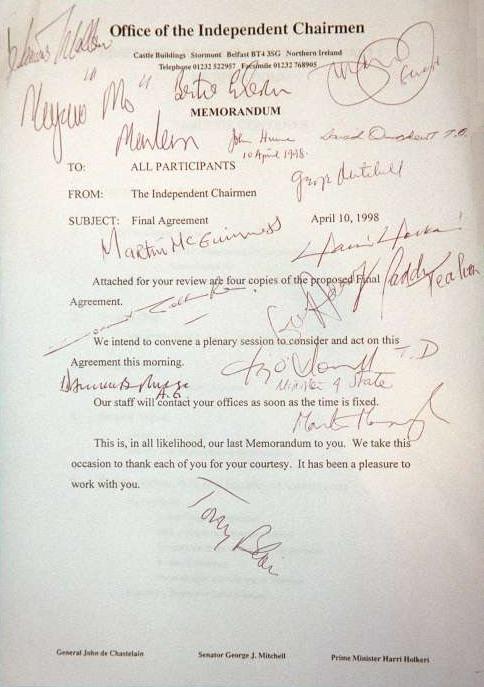 Office of the Independent Chairmen
Castle Buildings Stormont Belfast BT4 3SG Northern Ireland
Telephone 01232 522957 Facsimile 01232 768905
"Mo"
Bertie Ahern
MEMORANDUM
Mowlam
John Hume
10 April 1998.
TO: ALL PARTICIPANTS
George Mitchell
FROM: The Independent Chairmen
SUBJECT: Final Agreement April 10, 1998
Martin McGuinness
Harri Holkeri
Attached for your review are four copies of the proposed Final
Paddy Teahon
Agreement.
We intend to convene a plenary session to consider and act on this
T.D
Agreement this morning.
Minister of State
A.G
Our staff will contact your offices as soon as the time is fixed.
This is, in all likelihood, our last Memorandum to you. We take this
occasion to thank each of you for your courtesy. It has been a pleasure to
work with you.
Tony Blair
General John de Chastelain Senator George J. Mitchell Prime Minister Harri Holkeri